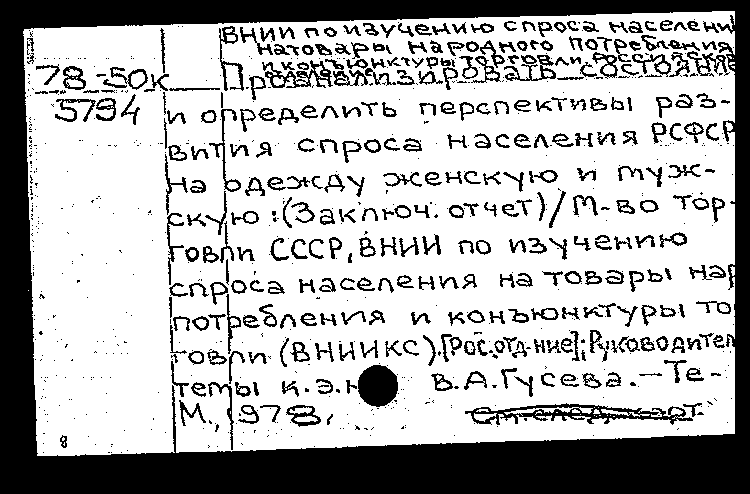 ВНИИ по изучению спроса населени
на товары народного потребления
и конъюнктуры торговли. Российское
отделение
78-50к Проанализировать состояние
5794 и определить перспективы раз-
вития спроса населения РСФСР
на одежду женскую и муж-
скую :(Заключ. отчет)/М-во тор-
говли СССР, ВНИИ по изучению
спроса населения на товары нар
потребления и конъюнктуры то
говли (ВНИИКС).[Рос.отд-ние]; Руководител
темы к.э.н В.А.Гусева.-Те-
М., 1978,
см. след. карт.
8